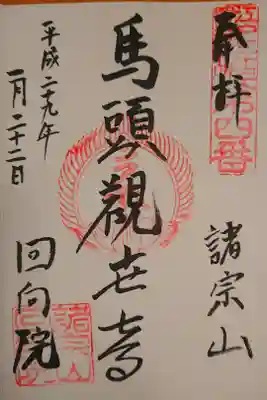 奉拝
諸宗山
馬頭観世音
平成二十九年
一月二十二日
回向院